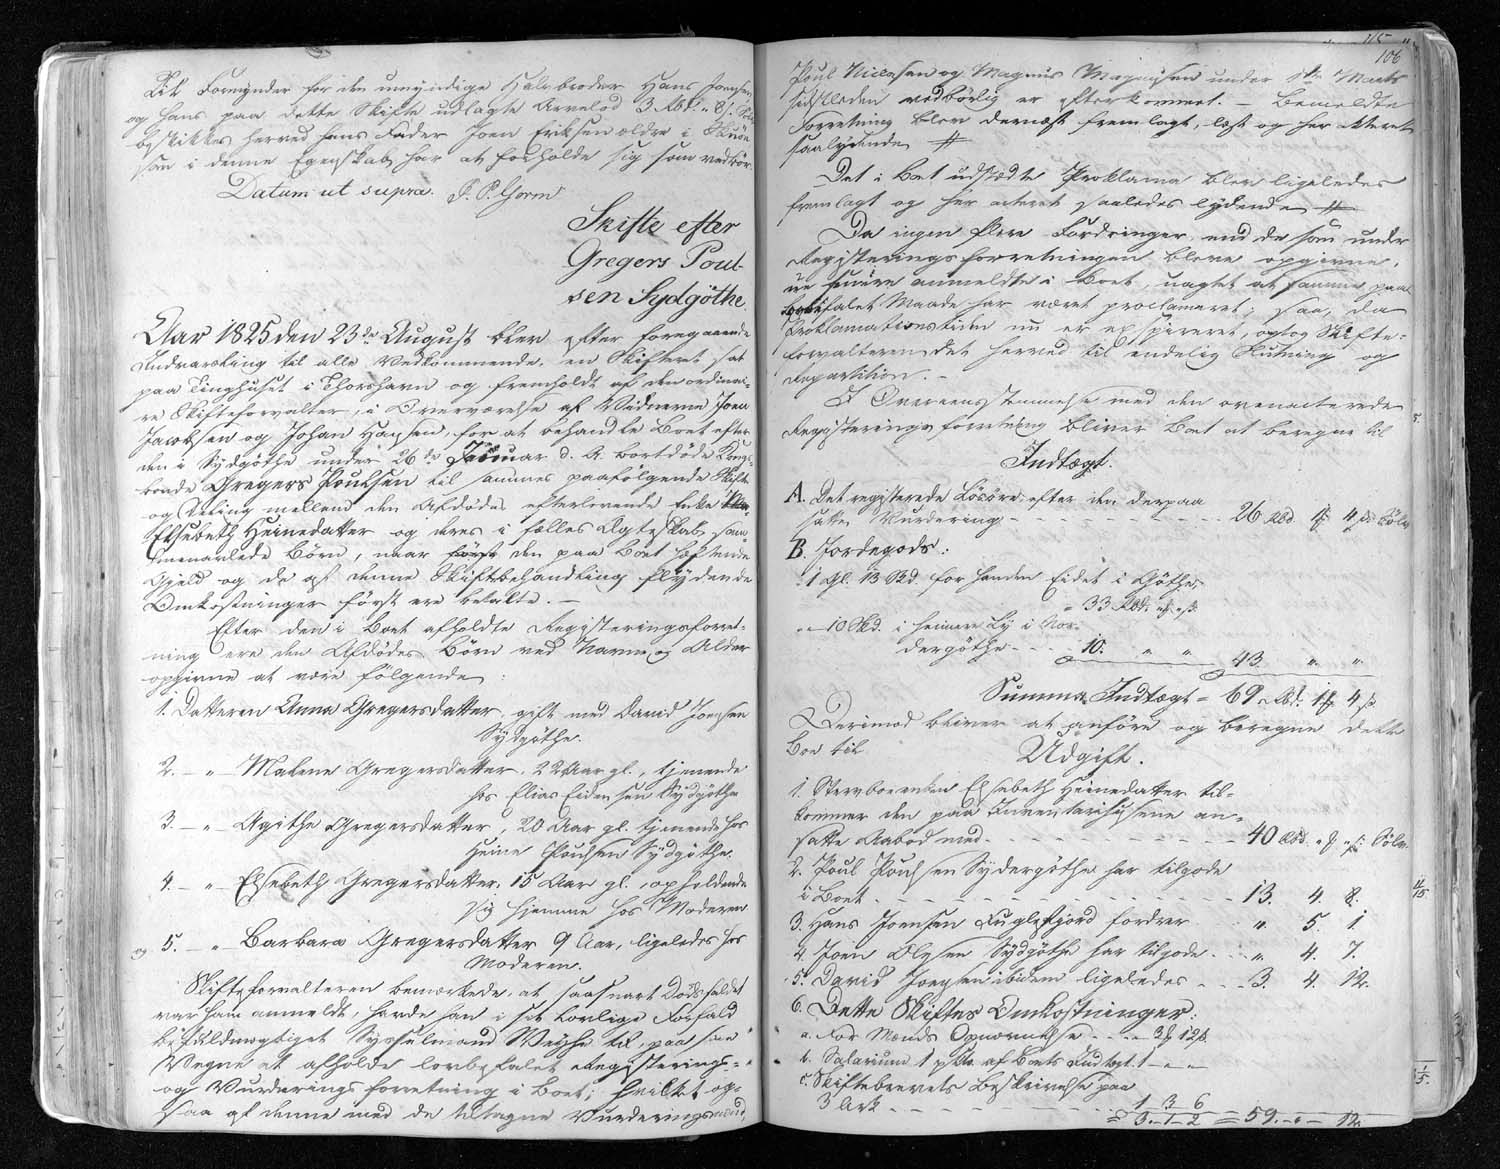 Til Formynder for den umyndige Halvbroder Hans Joensen
og hans paa dette Skifte udlagte Arvelod 3 Rbd. " 8 s.
beskikkes herved hans Fader Joen Eriksen ældre i Skuøe
som i denne Egenskab har at forholde sig som vedbør.
Datum ut supra. J. P. Gorm
Skifte efter
Gregers Poul-
sen Sydgöthe.
Aar 1825 den 23de August blev efter foregaaende
Indvarsling til alle Vedkommende, en Skifteret sat
paa Tinghuset i Thorshavn og fremholdt af den ordinai-
re Skifteforvalter, i Overværelse af Vidnerne Joen
Jacobsen og Johan Hansen, for at behandle Boet efter
den i Sydgöthe under 26de Januar d. A. bortdöde Kongs-
bonde Gregers Poulsen til sammes paafölgende Skifte
og Deling mellem den Afdödes efterlevende Enke
Elsebeth Heinedatter og deres i fælles Ægteskab sam-
menavlede Börn, naar först den paa Boet hæftende
Gjeld og de af denne Skiftebehandling flydende
Omkostninger först ere betalte. —
Efter den i Boet afholdte Registeringsforret-
ning ere den Afdödes Börn ved Navne og Alder
opgivne at være fölgende:
1. Datteren Anna Gregersdatter, gift med David Joensen
Sydgöthe.
2. — " — Malene Gregersdatter, 22 Aar gl., tjenende
hos Elias Eidensen Sydgöthe
3. — " — Agithe Gregersdatter, 20 Aar gl. tjenende hos
Heine Poulsen Sydgöthe.
4. — " — Elsebeth Gregersdatter, 15 Aar gl., opholdende
sig hjemme hos Moderen
og 5. — " — Barbara Gregersdatter 9 Aar, ligeledes hos
Moderen.
Skifteforvalteren bemærkede, at saasnart Dödsfaldet
var ham anmeldt, havde han i sit lovlige Forfald
befuldmægtiget Sysselmand Weyhe til, paa sine
Vegne at afholde lovbefalet Registerings-
og Vurderings forretning i Boet; hvilket og-
saa af denne med de tiltagne Vurderingsmænd
106
Poul Niclasen og Magnus Magnusen under 1ste Marts
sidstleden vedbörlig er efterkommet. — Bemeldte
Forretning blev dernæst fremlagt, læst og her acteret
saalydende #
Det i Boet udstædte Proklama blev ligeledes
fremlagt og her acteret saaledes lydende #
Da ingen flere Fordringer, end de som under
Registeringsforretningen bleve opgivne,
ere anmeldte i Boet, uagtet at samme paa
befalet Maade har været proclameret; saa, da
Proklamationstiden nu er expireret, optog Skifte-
forvalteren det herved til endelig Slutning og
Repartition. —
I Overeensstemmelse med den ovenacterede
Registerings forretning bliver Boet at beregne til
Indtægt.
A. Det registerede Lösöre efter den derpaa
satte Vurdering - - - - - 26 Rbd. 1 4 s. Sölv
B. Jordegods:
1 Gl. 13 Skd. forhanden Eidet i Göthe,
33 Rbd. " "
" — 10 Skd. i heimere By i Nor-
dergöthe - - - 10. " " 43 " "
Summa Indtægt = 69 Rbd. 1 4 s.
Derimod bliver at anföre og beregne dette
Boe til Udgift.
1. Stervboeenken Elsebeth Heinedatter til-
kommer den paa Inventarihusene an-
satte Aabod med - - - - - 40 Rbd. " " Sölv
2. Poul Poulsen Sydergöthe har tilgode
i Boet - - - - - 13. 4. 8.
3. Hans Joensen Fuglefjord fordrer " 5. 1
4. Joen Olesen Sydgöthe har tilgode - - " 4. 7.
5. David Joensen ibidem ligeledes - - - 3. 4. 12.
6. Dette Skiftes Omkostninger:
a. For Mænds Opnævnelse - - - 3 12 s.
b. Salarium 1 pCto. af Boets Indtægt 1 — " —
c. Skiftebrevets Beskrivelse paa
3 Ark - - - - - 1 3 6
= 3. — 1 — 2 = 59. — " — 12.